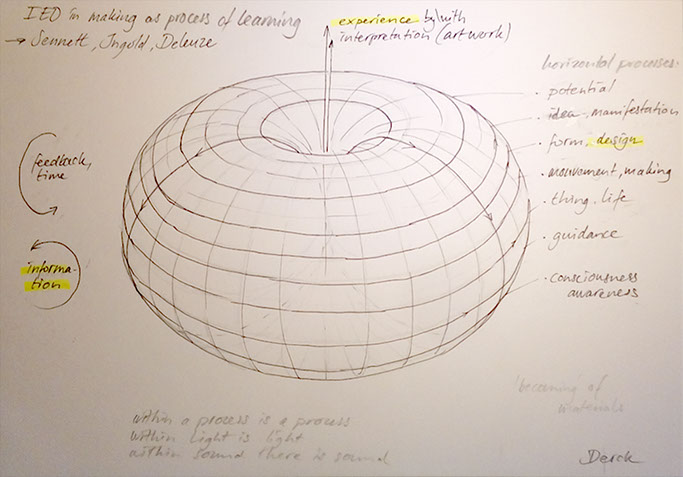 IED in making as process of learning
→ Sennett, Ingold, Deleuze
experience by/with
interpretation (art work)
horizontal processes:
· potential
· idea, manifestation
· form, design
· mouvement, making
· thing, life
· guidance
· consciousness
awareness
feedback,
time
informa-
tion
'becoming' of
materials
within a process is a process
within light is light
within sound there is sound
Derck